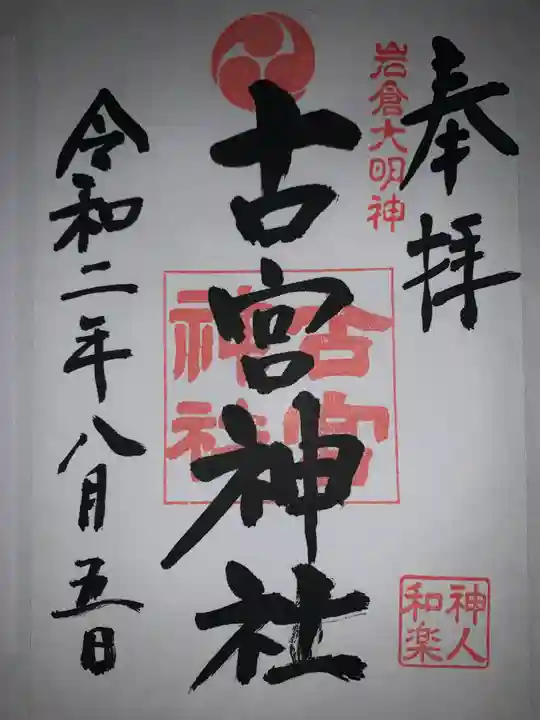 奉拝
岩倉大明神
古宮神社
古宮
神社
令和二年八月五日
神人
和楽